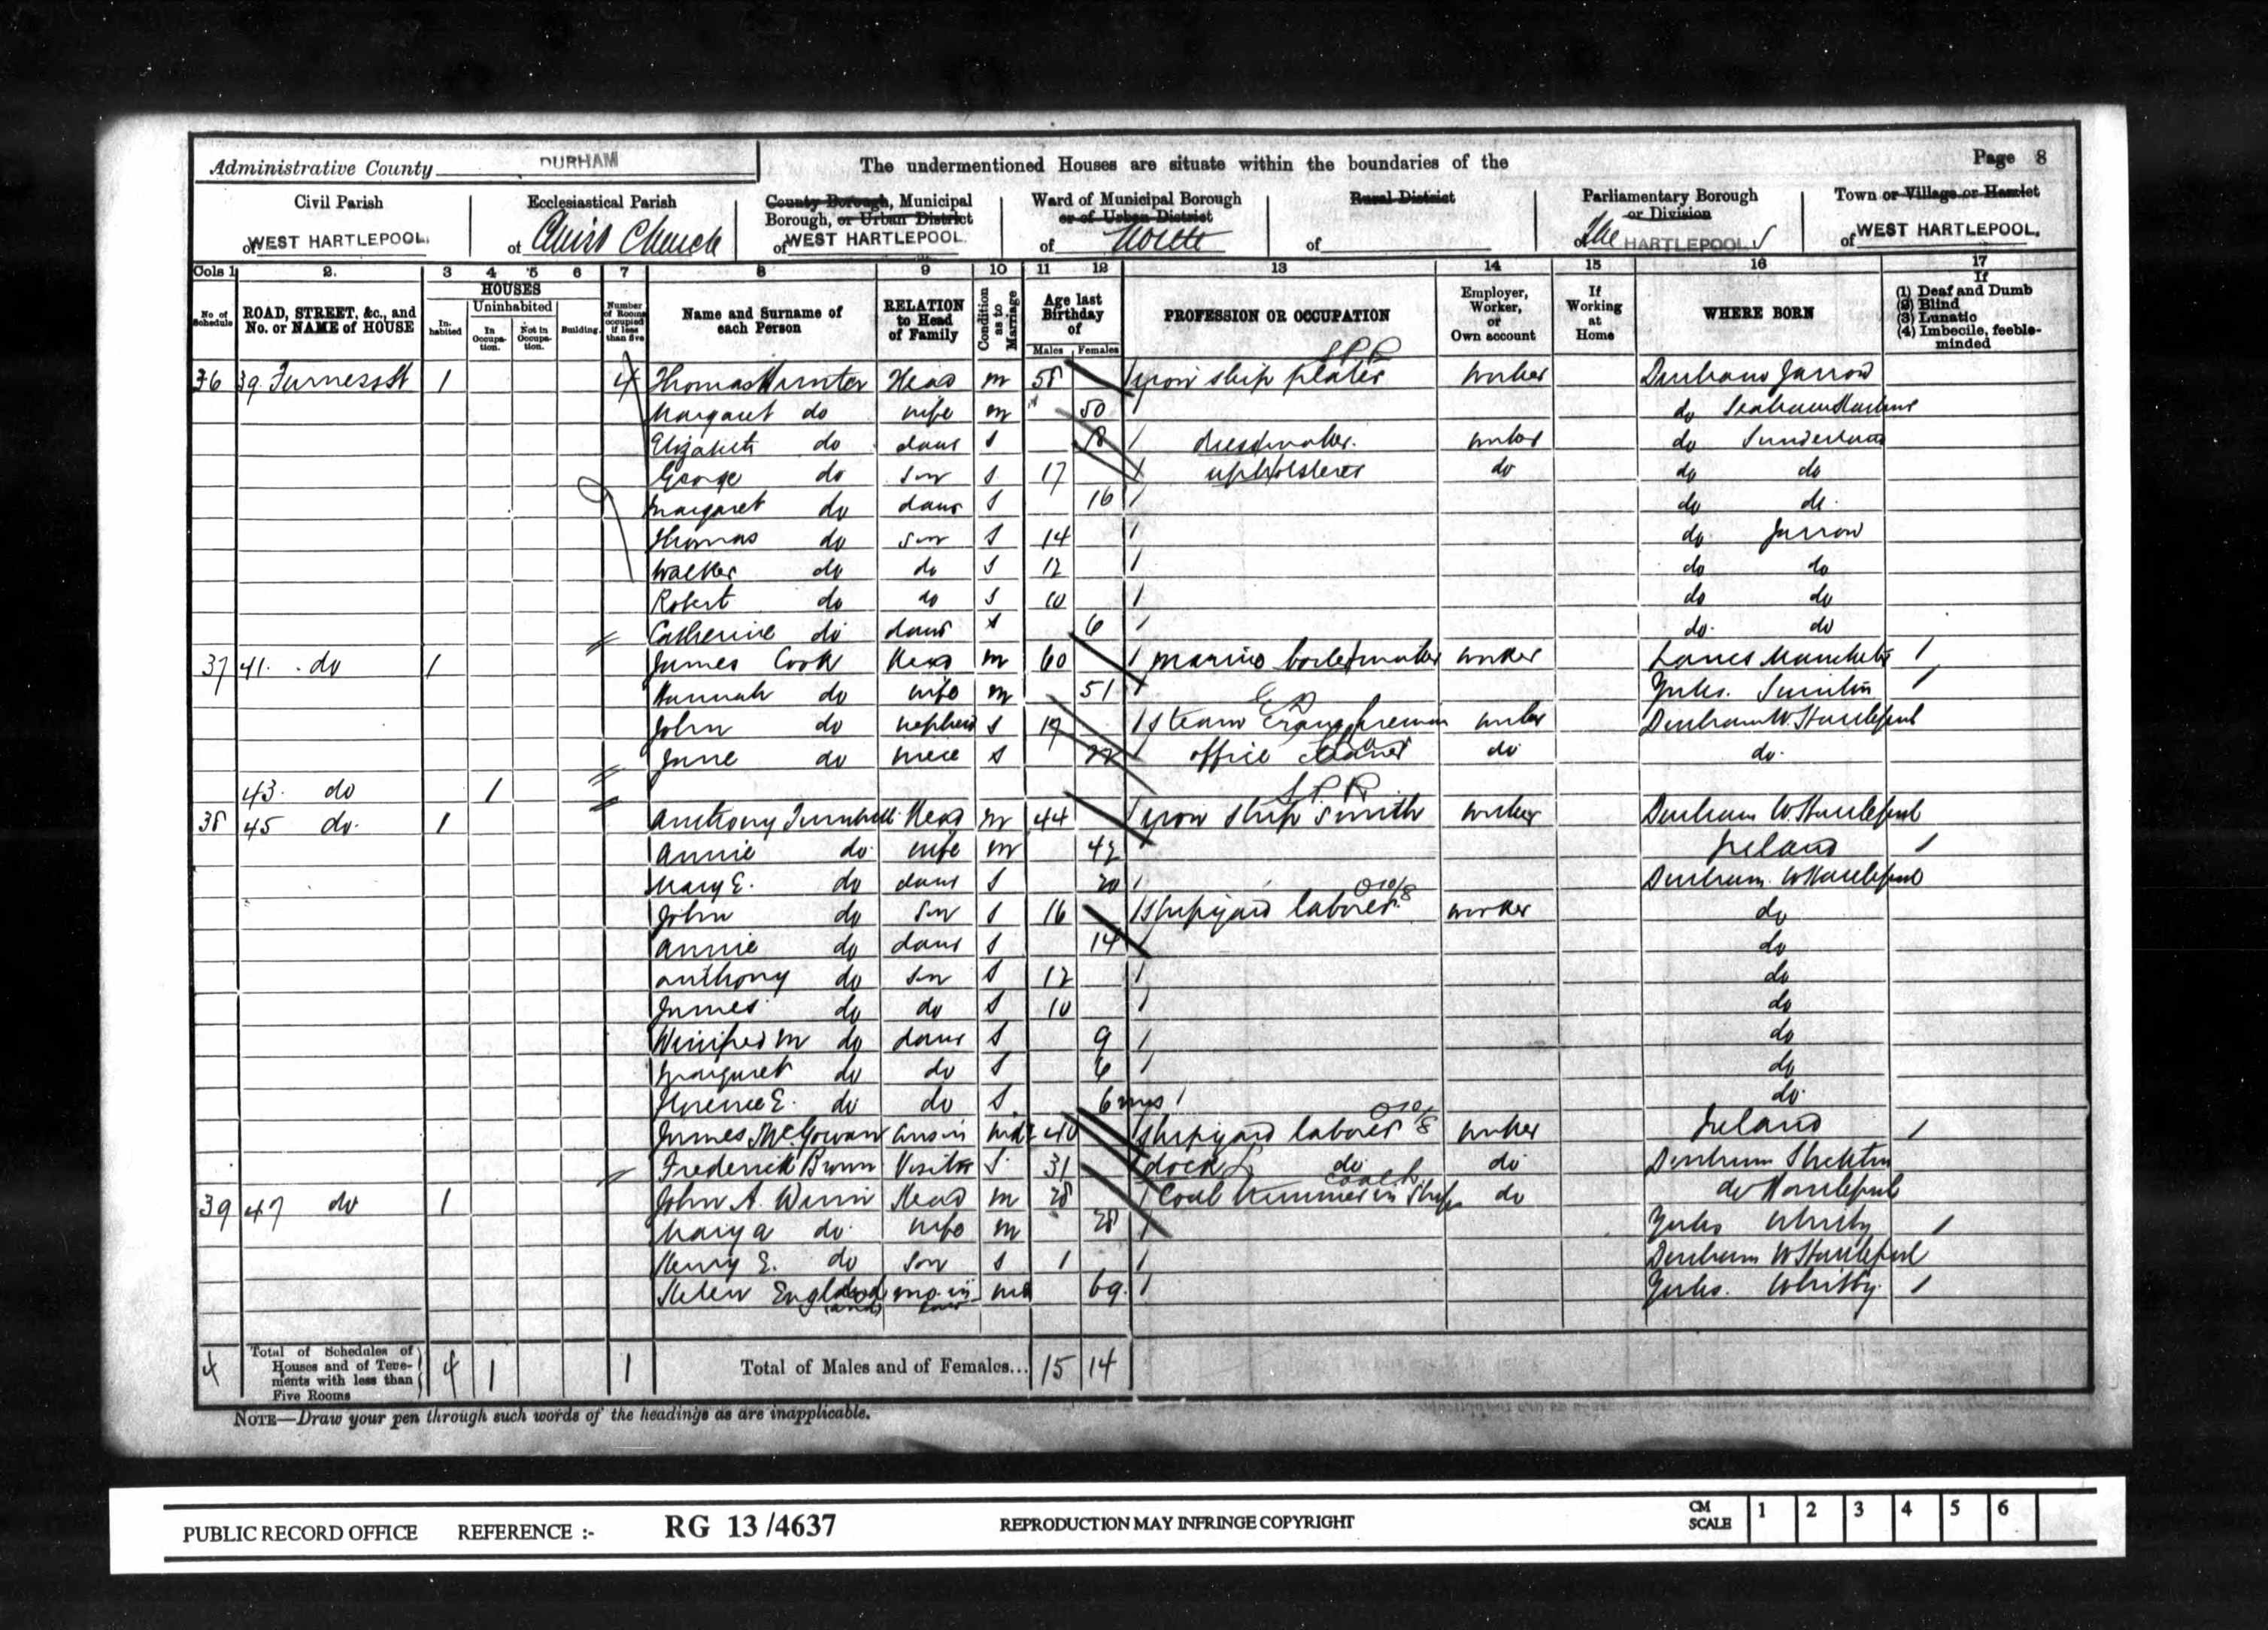 Administrative County DURHAM The undermentioned Houses are situate within the boundaries of the Page 8
Civil Parish of WEST HARTLEPOOL. Ecclesiastical Parish of Christ Church County Borough, Municipal Borough, or Urban District of WEST HARTLEPOOL. Ward of Municipal Borough or of Urban District of Rural District of Parliamentary Borough or Division of The HARTLEPOOLS Town or Village or Hamlet of WEST HARTLEPOOL.
Cols 1 2. 3 4 5 6 7 8 9 10 11 12 13 14 15 16 17
No. of Schedule ROAD, STREET, &c., and No. or NAME of HOUSE HOUSES Inhabited Uninhabited In Occupation. Not in Occupation. Building. Number of Rooms occupied if less than five Name and Surname of each Person RELATION to Head of Family Condition as to Marriage Age last Birthday of Males Females PROFESSION OR OCCUPATION Employer, Worker, or Own account If Working at Home WHERE BORN If (1) Deaf and Dumb (2) Blind (3) Lunatic (4) Imbecile, feeble-minded
36 39 Furness St 1 4 Thomas Hunter Head m 58 Iron ship plater worker Durham Jarrow
Margaret do wife m 50 do Seaham Harbour
Elizabeth do daur S 18 dressmaker. worker do Sunderland
George do son S 17 upholsterer do do do
Margaret do daur S 16 do do
Thomas do son S 14 do Jarrow
Walter do do S 12 do do
Robert do do S 10 do do
Catherine do daur S 6 do do
37 41 do 1 James Cook Head m 60 marine boilermaker worker Lancs Manchester
Hannah do wife m 51 Yorks.
John do nephew S steam Crane fireman worker Durham W. Hartlepool
Jane do niece S 22 office cleaner do do
43 do 1
38 45 do 1 Anthony Turnbull Head m 44 Iron ship smith worker Durham W. Hartlepool
Annie do wife m 42 Ireland
Mary E. do daur S 20 Durham W Hartlepool
John do son S 16 shipyard laborer worker do
Annie do daur S 14 do
Anthony do son S 12 do
James do do S 10 do
Winifred M do daur S 9 do
Margaret do do S 6 do
Florence E. do do S 6 mos do
James McGowan cousin 40 shipyard laborer worker Ireland
Frederick Brown Visitor S 31 dock do do Durham
39 47 do 1 John A. Winn Head m 28 Coal trimmer in ships do do Hartlepool
Mary A do wife m 28 Yorks Whitby
Henry E. do son S 1 Durham W Hartlepool
Helen mo. in law 69 Yorks. Whitby
4 Total of Schedules of Houses and of Tenements with less than Five Rooms 4 1 1 Total of Males and of Females... 15 14
NOTE—Draw your pen through such words of the headings as are inapplicable.
PUBLIC RECORD OFFICE REFERENCE :- RG 13 /4637 REPRODUCTION MAY INFRINGE COPYRIGHT CM SCALE 1 2 3 4 5 6